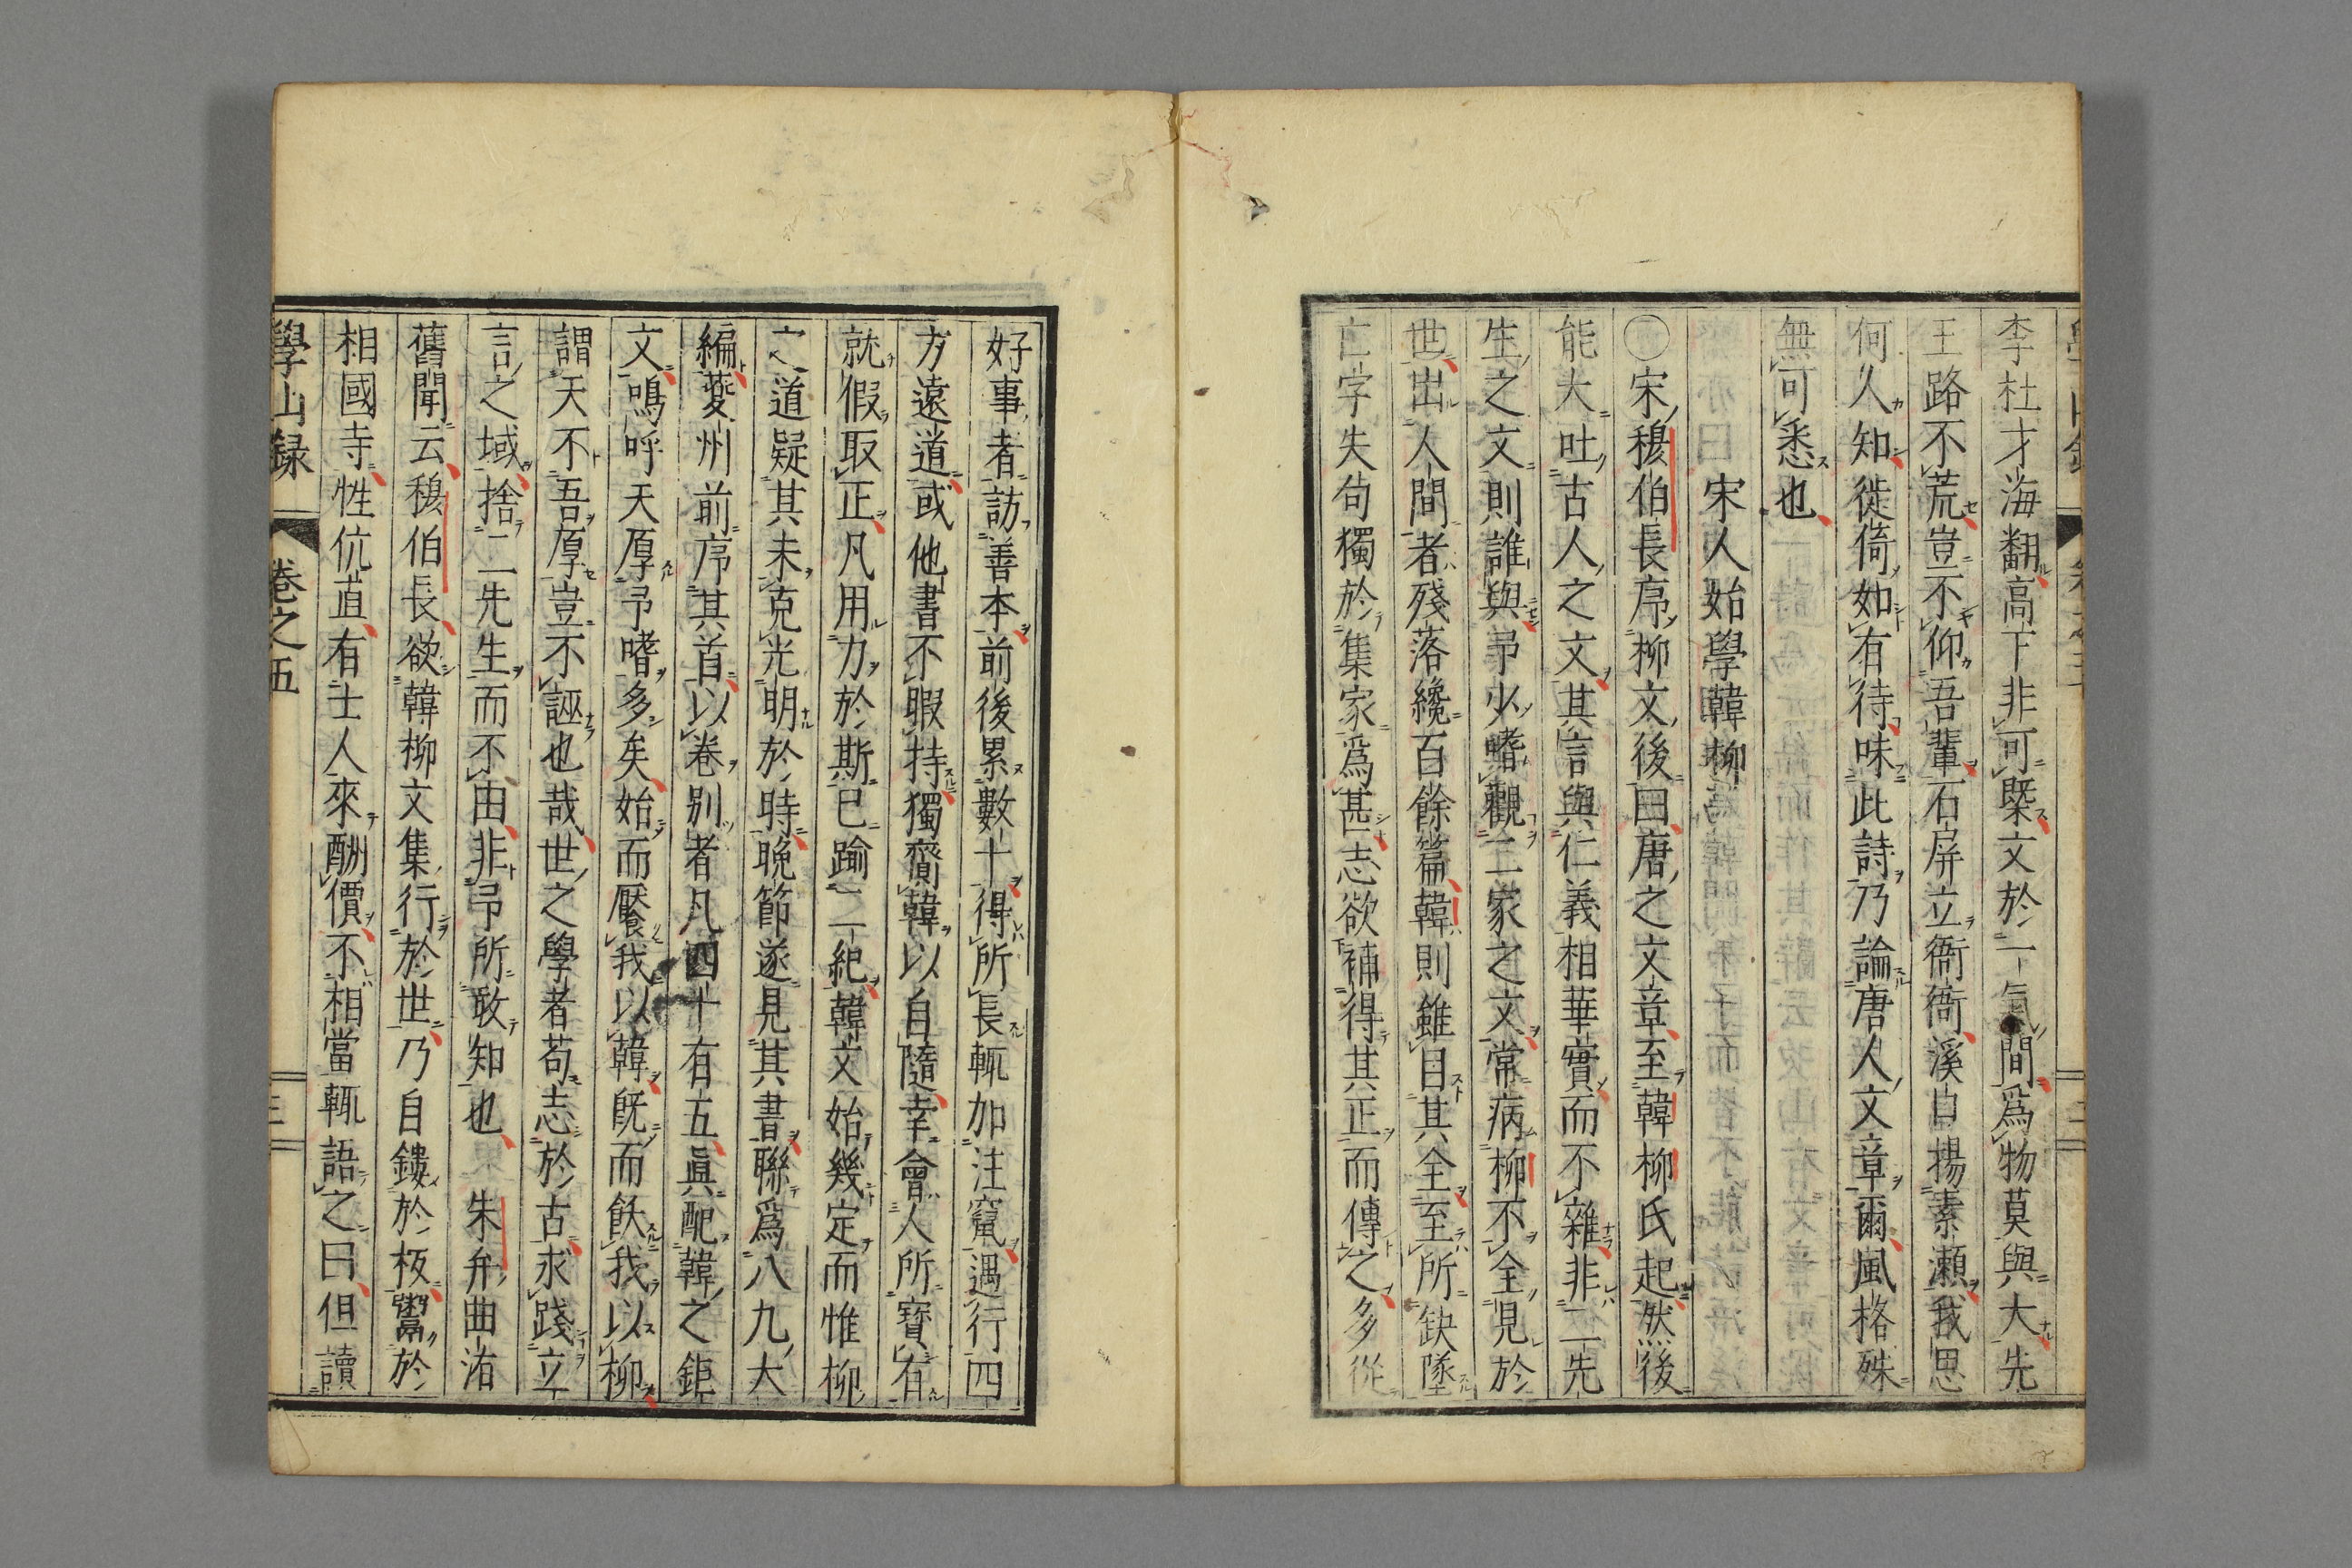 李杜才海翻高下非可槩文於一氣間爲物莫與大先
王路不荒豈不仰吾輩石屏立衙衙溪自揚素瀬我思
何人知徙倚如有待味此詩乃論唐人文章爾風格殊
無可悉也
宋人始學韓柳
〇宋穆伯長序柳文後曰唐之文章至韓柳氏起然後
能大吐古人之文其言與仁義相華實而不雜非二先
生之文則誰與予少嗜觀二家之文常病柳不全見於
世出人間者殘落纔百餘篇韓則雖目其全至所缺墜
亡字失句獨於集家爲甚志欲補得其正而傳之多從
好事者訪善本前後累數十得所長輒加注竄遇行四
方遠道或他書不暇持獨齎韓以自隨幸會人所寶有
就假取正凡用力於斯已踰二紀韓文始幾定而惟柳
之道疑其未克光明於時晩節遂見其書聯爲八九大
編夔州前序其首以卷别者凡四十有五眞配韓之鉅
文嗚呼天厚予嗜多矣始而饜我以韓旣而飫我以柳
謂天不吾厚豈不誣也哉世之學者苟志於古求踐立
言之域捨二先生而不由非予所敢知也 朱弁曲洧
舊聞云穆伯長欲韓柳文集行於世乃自鏤於板鬻於
相國寺性伉直有士人來酬價不相當輒語之曰但讀
學山録 卷之五
三